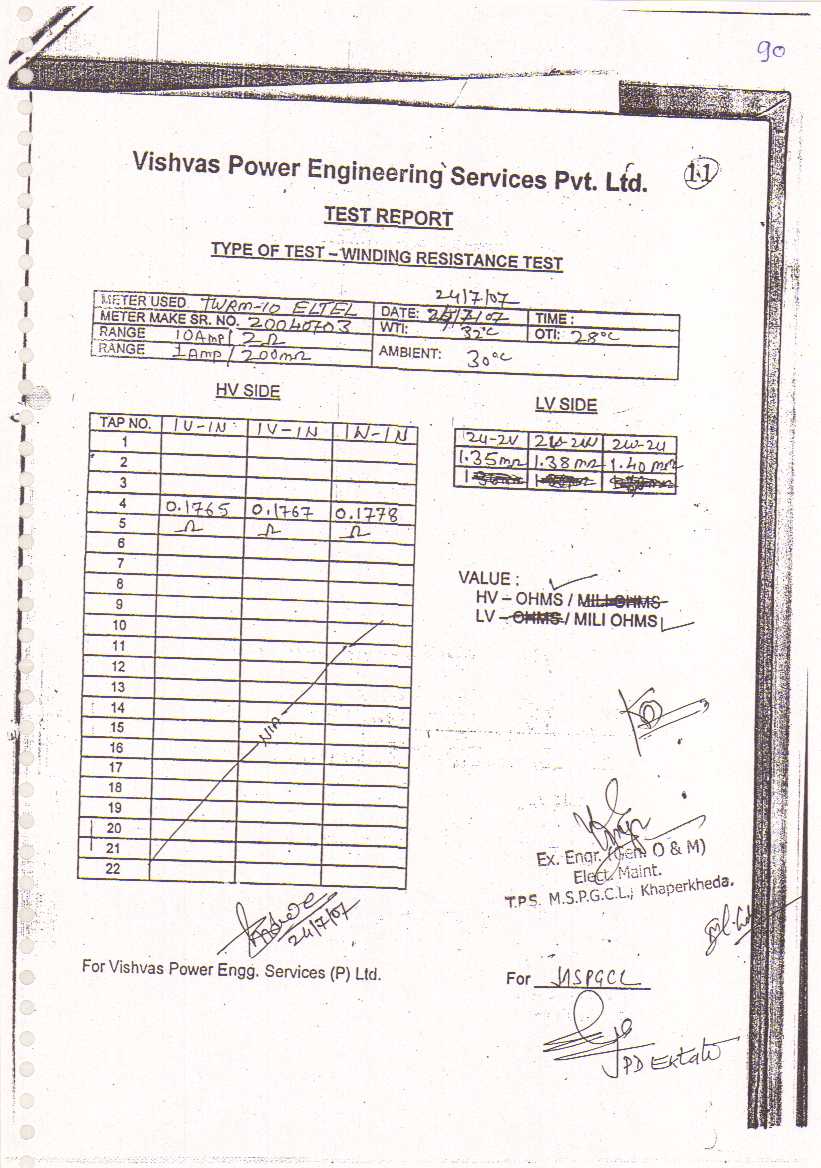 90
Vishvas Power Engineering Services Pvt. Ltd.
11
TEST REPORT
TYPE OF TEST – WINDING RESISTANCE TEST
24/7/07
METER USED TWRM-10 ELTEL DATE: 25/7/07 TIME :
METER MAKE SR. NO. 20040703 WTI: 32°C OTI: 28°C
RANGE 10Amp / 2Ω
RANGE 1Amp / 200mΩ AMBIENT: 30°C
HV SIDE
LV SIDE
TAP NO. 1U-1N 1V-1N 1W-1N
1
2
3
4 0.1765 0.1767 0.1778
5 Ω Ω Ω
6
7
8
9
10
11
12
13
14
15
16
17
18
19
20
21
22
N/A
2U-2V 2V-2W 2W-2U
1.35mΩ 1.38mΩ 1.40mΩ
VALUE :
HV – OHMS / MILI OHMS
LV – OHMS / MILI OHMS
Ex. Engr. (Gen O & M)
Elect. Maint.
T.P.S. M.S.P.G.C.L., Khaperkheda.
24/7/07
For Vishvas Power Engg. Services (P) Ltd.
For MSPGCL